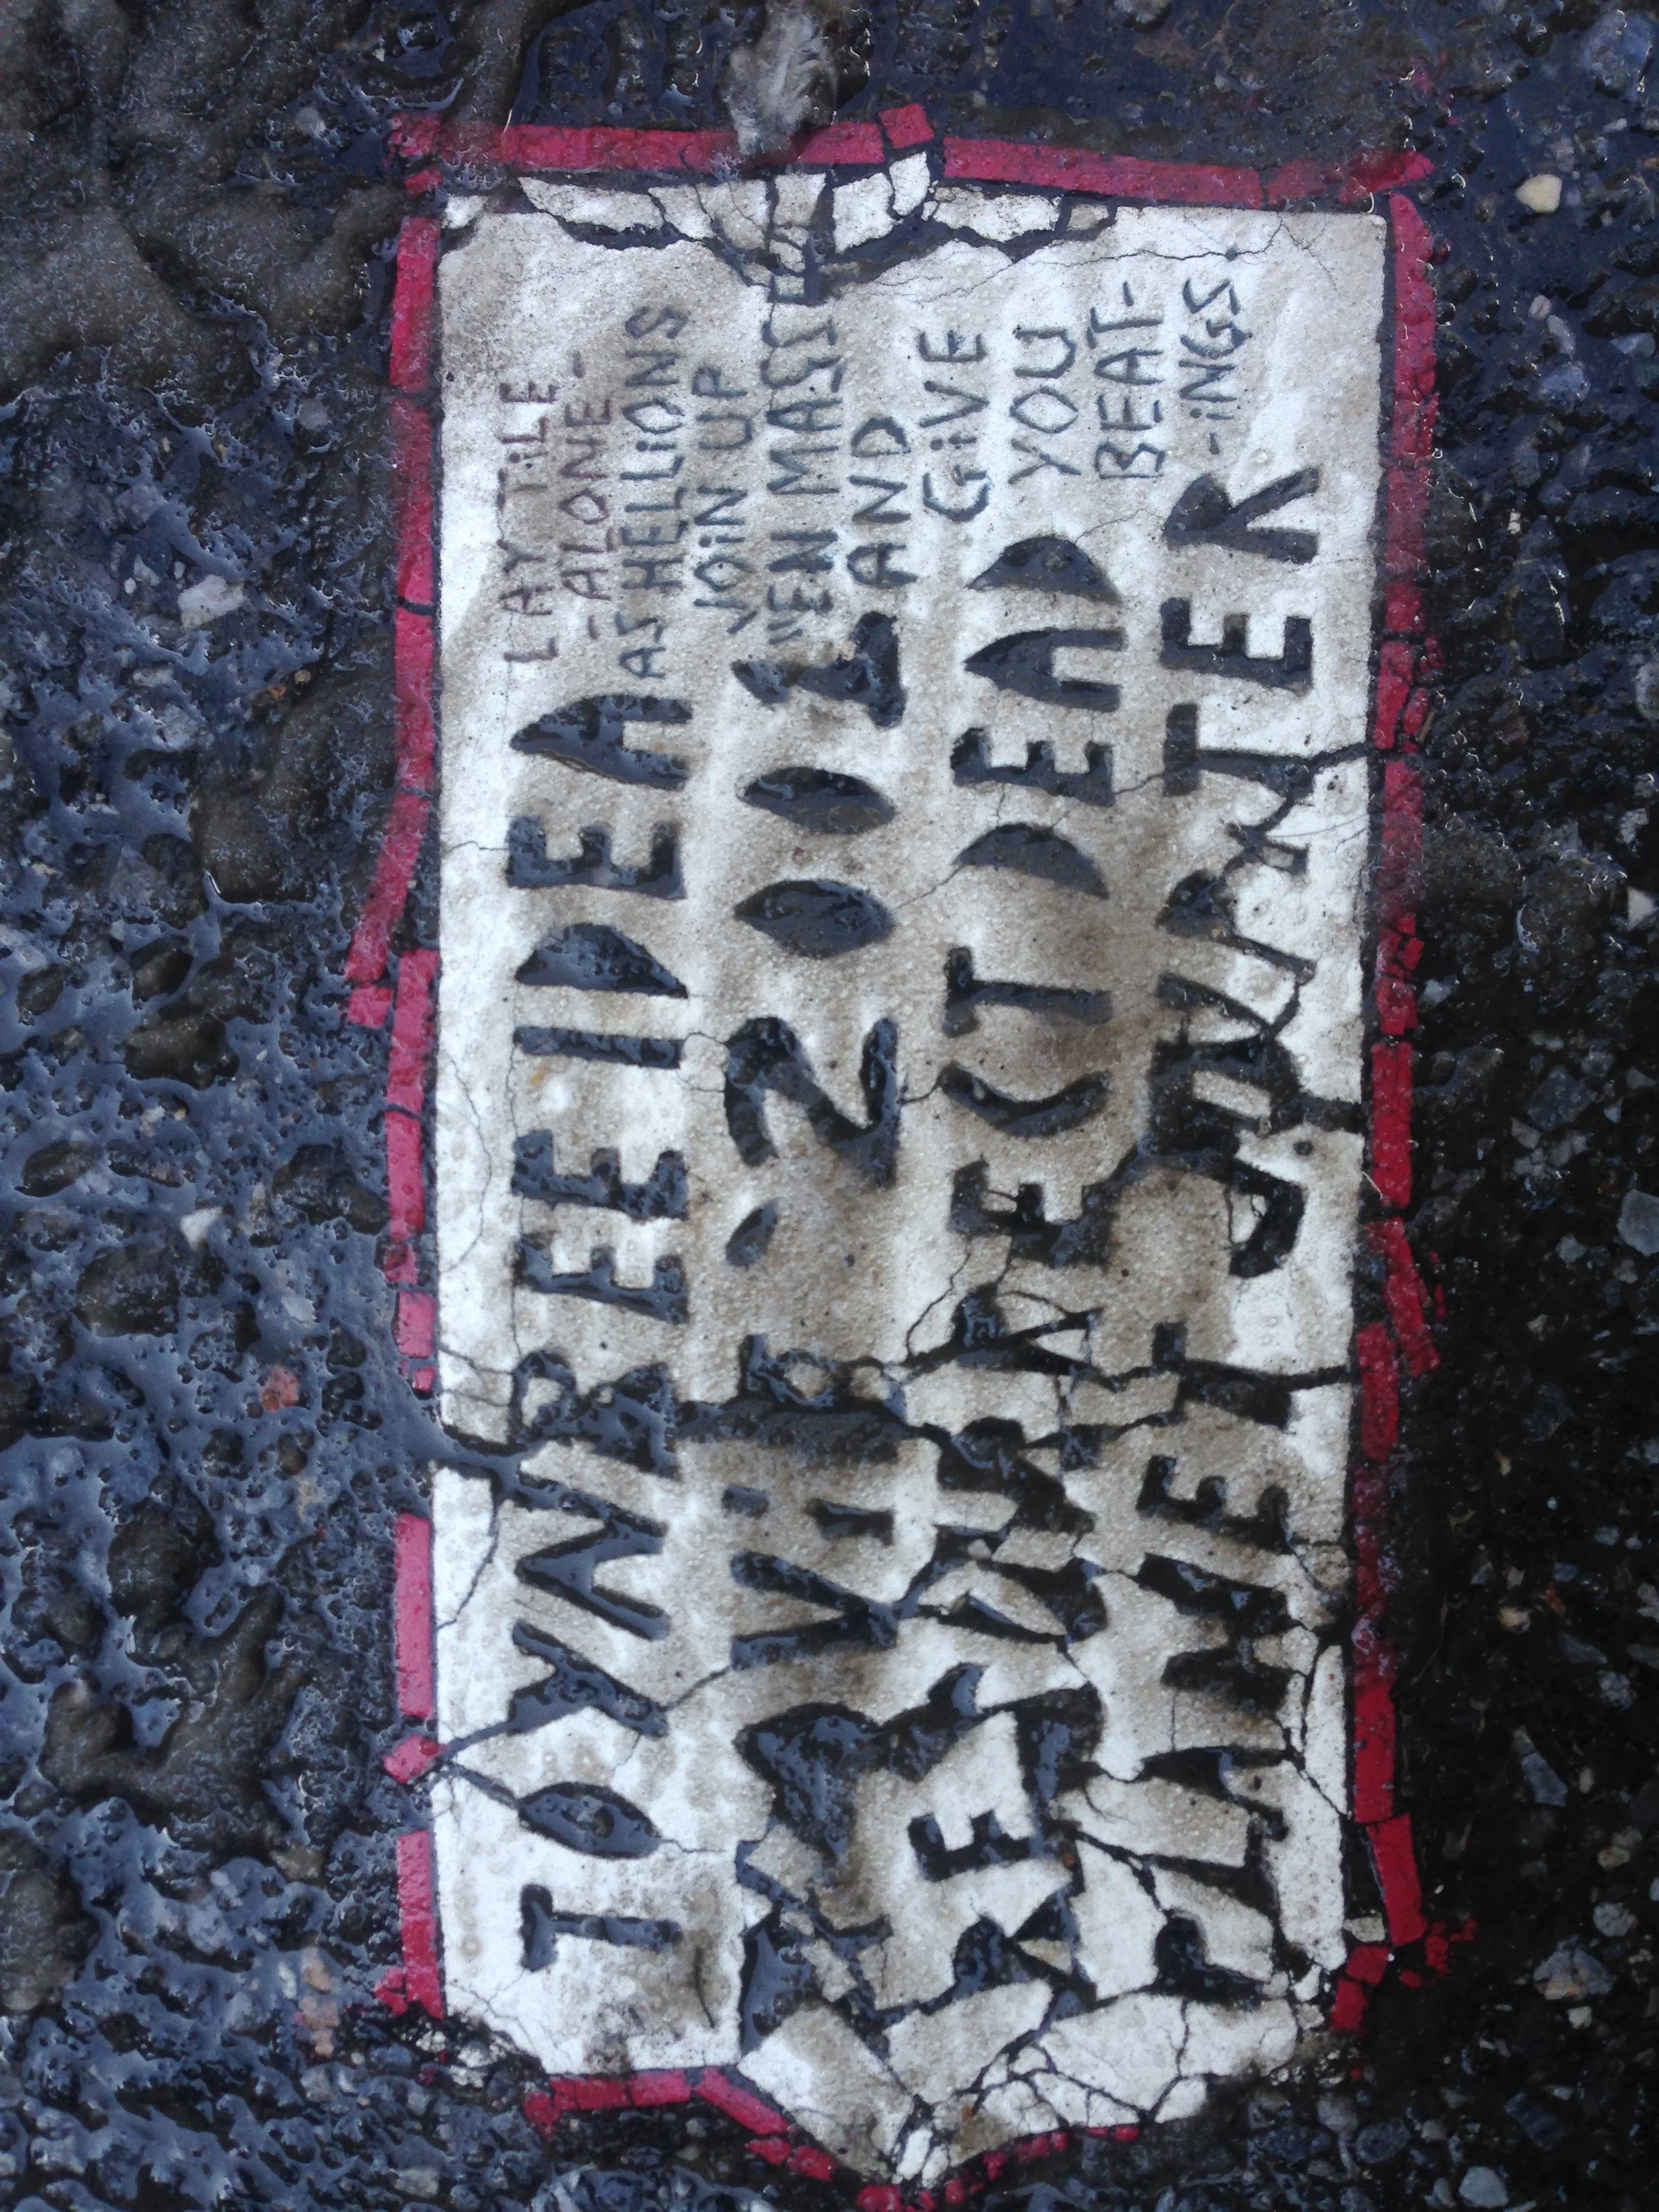 TOYNBEE IDEA
MOViE '2001
RESURRECT DEAD
PLANET JUPITER
LAY TiLE-
-ALONE-
AS HELLiONS
JOiN UP
"EN MASSE"
AND
GiVE
YOU
BEAT-
-iNGS.